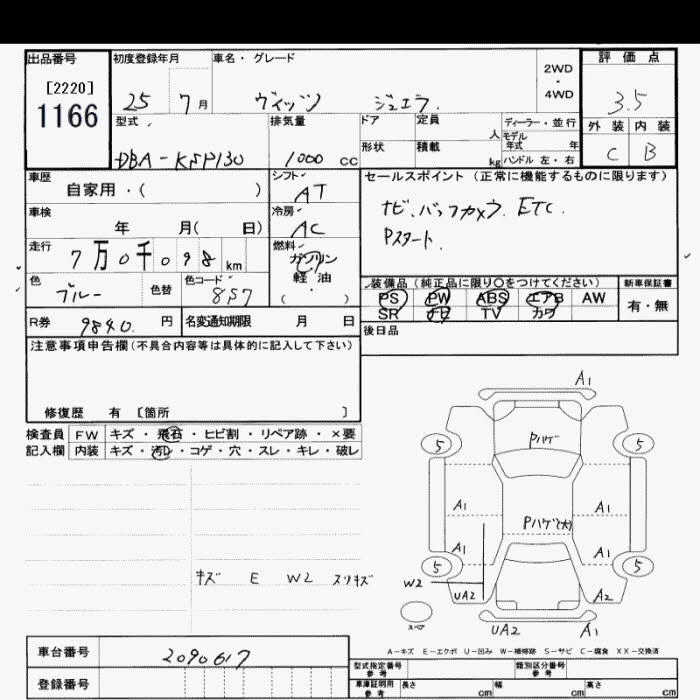 出品番号 初度登録年月 車名・グレード 2WD・4WD 評価点
[2220]
1166
25 7月 ヴィッツ ジュエラ. 3.5
型式 排気量 ドア 定員 人 ディーラー・並行 外装 内装
モデル年式 年
DBA-KSP130 1000cc 形状 積載 kg ハンドル 左・右 C B
車歴 自家用・( ) シフト AT セールスポイント(正常に機能するものに限ります)
車検 年 月( 日) 冷房 AC ナビ.バックカメラ. ETC.
Pスタート.
走行 7万0千098km 燃料 ガソリン 軽油 ・( )
色 ブルー 色替 色コード 8S7 装備品(純正品に限り○をつけてください) 新車保証書
PS PW ABS エアB AW 有・無
SR ナビ TV カワ
R券 9840.円 名変通知期限 月 日 後日品
注意事項申告欄(不具合内容等は具体的に記入して下さい)
修復歴 有 [箇所 ]
検査員 FW キズ・飛石・ヒビ割・リペア跡・×要
記入欄 内装 キズ・汚レ・コゲ・穴・スレ・キレ・破レ
A1
Pハゲ
5 5
A1 Pハゲ(大) A1
A1 A1
5 5
キズ E W2 スリキズ
W2 UA2 A2
スペア UA2 A1
A-キズ E-エクボ U-凹み W-補修跡 S-サビ C-腐食 XX-交換済
車台番号 2090617
登録番号
型式指定番号 参考 類別区分番号 参考
車庫証明用 参考 長さ cm 幅 cm 高さ cm